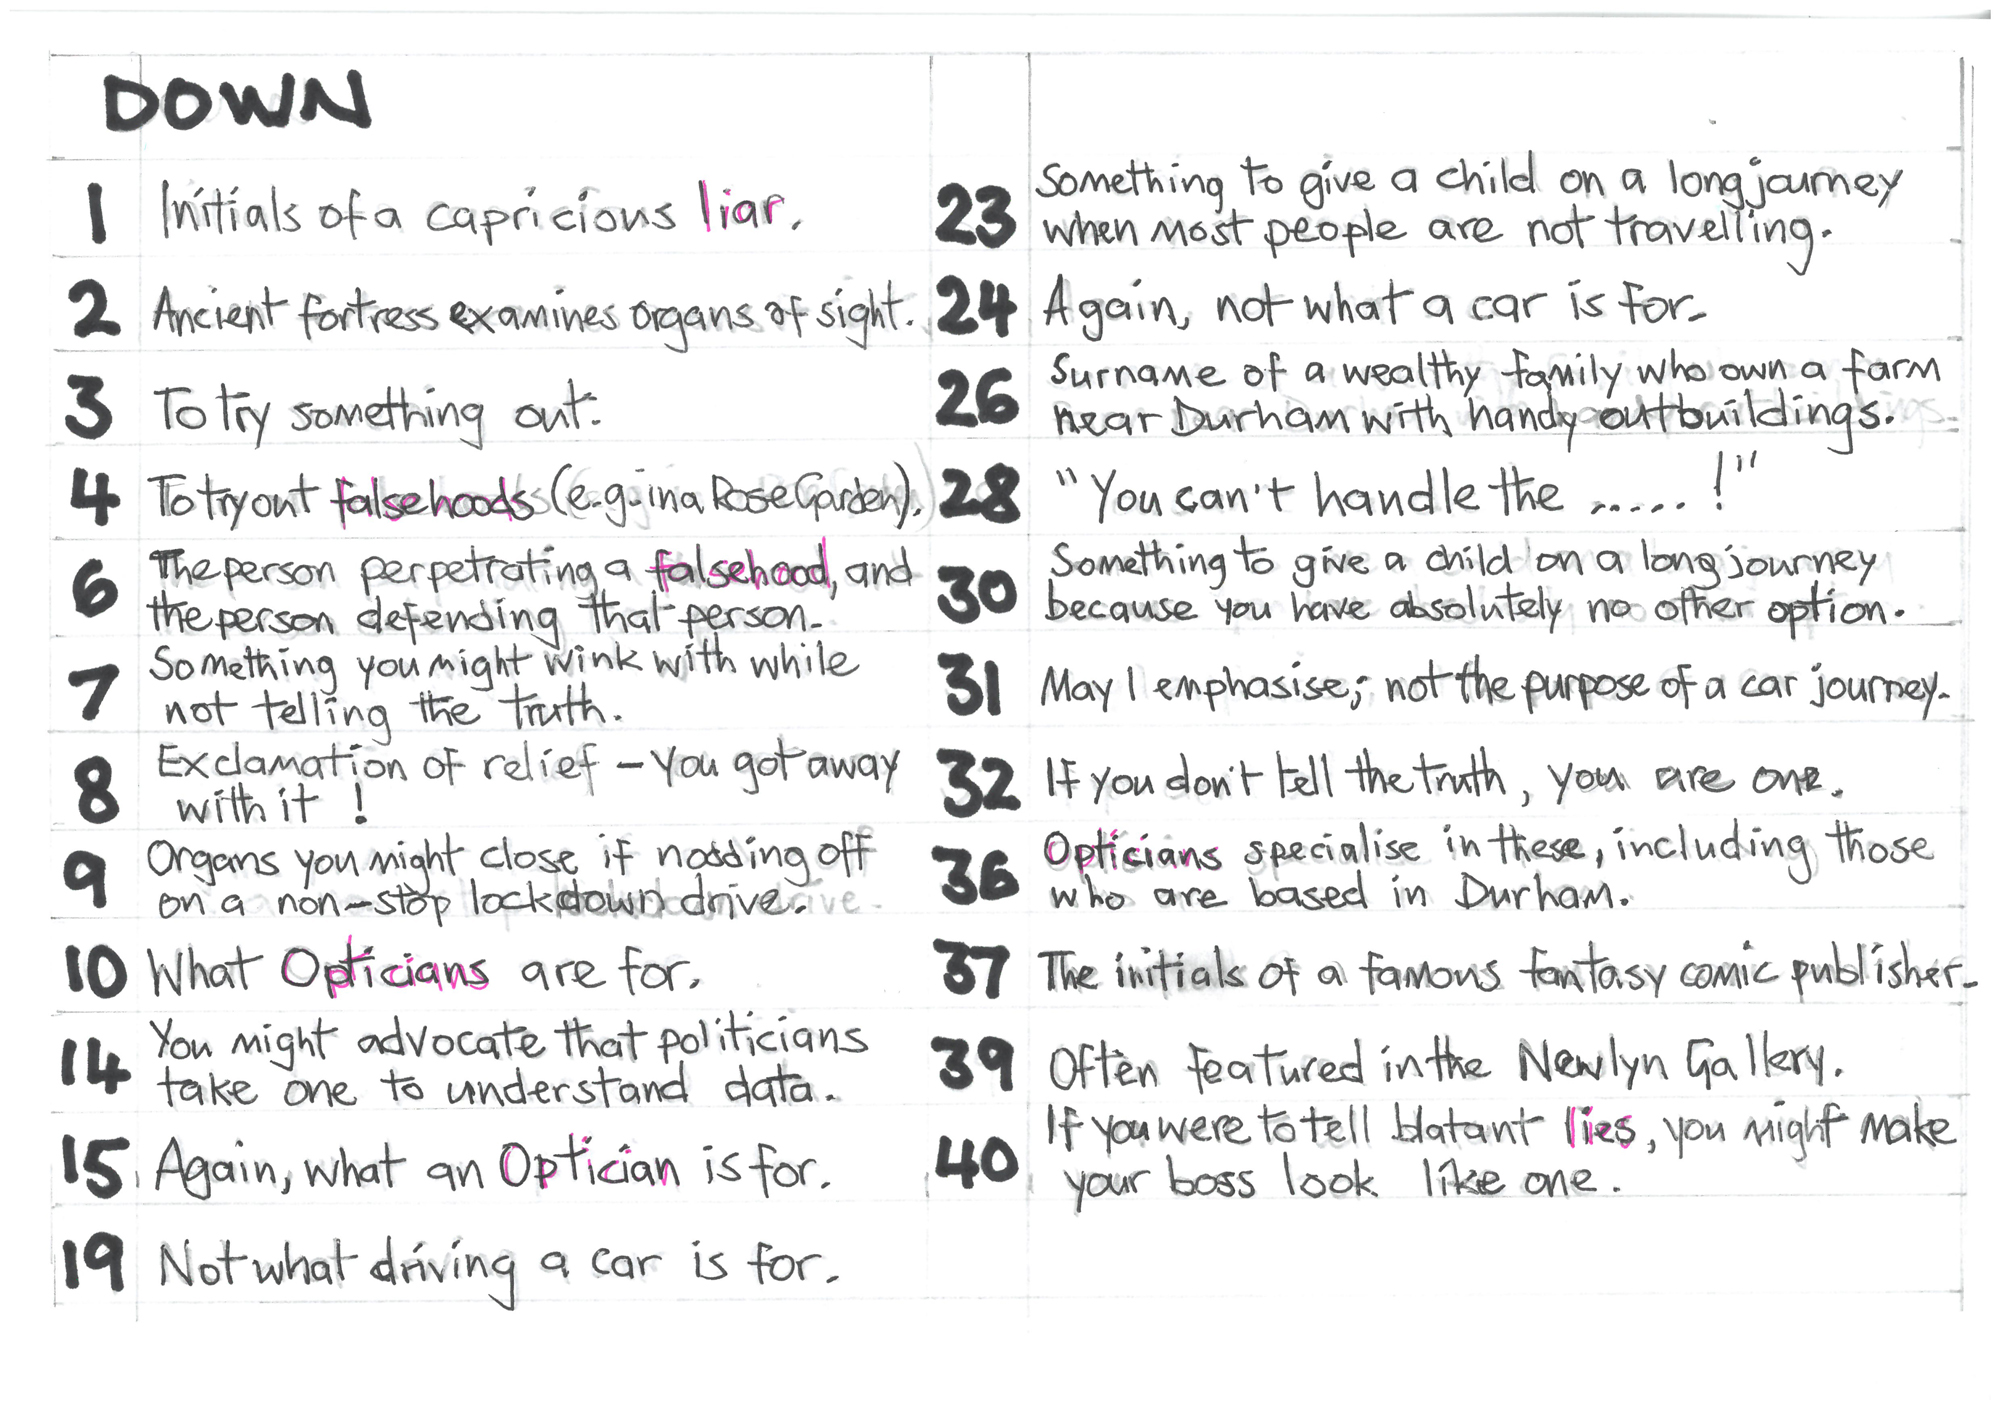 DOWN
1 Initials of a capricious liar.
2 Ancient fortress examines organs of sight.
3 To try something out.
4 To try out falsehoods (e.g. in a Rose Garden).
6 The person perpetrating a falsehood, and
the person defending that person.
7 Something you might wink with while
not telling the truth.
8 Exclamation of relief - you got away
with it !
9 Organs you might close if nodding off
on a non-stop lockdown drive.
10 What Opticians are for.
14 You might advocate that politicians
take one to understand data.
15 Again, what an Optician is for.
19 Not what driving a car is for.
23 Something to give a child on a long journey
when most people are not travelling.
24 Again, not what a car is for.
26 Surname of a wealthy family who own a farm
near Durham with handy outbuildings.
28 "You can't handle the ..... !"
30 Something to give a child on a long journey
because you have absolutely no other option.
31 May I emphasise; not the purpose of a car journey.
32 If you don't tell the truth, you are one.
36 Opticians specialise in these, including those
who are based in Durham.
37 The initials of a famous fantasy comic publisher.
39 Often featured in the Newlyn Gallery.
40 If you were to tell blatant lies, you might make
your boss look like one.